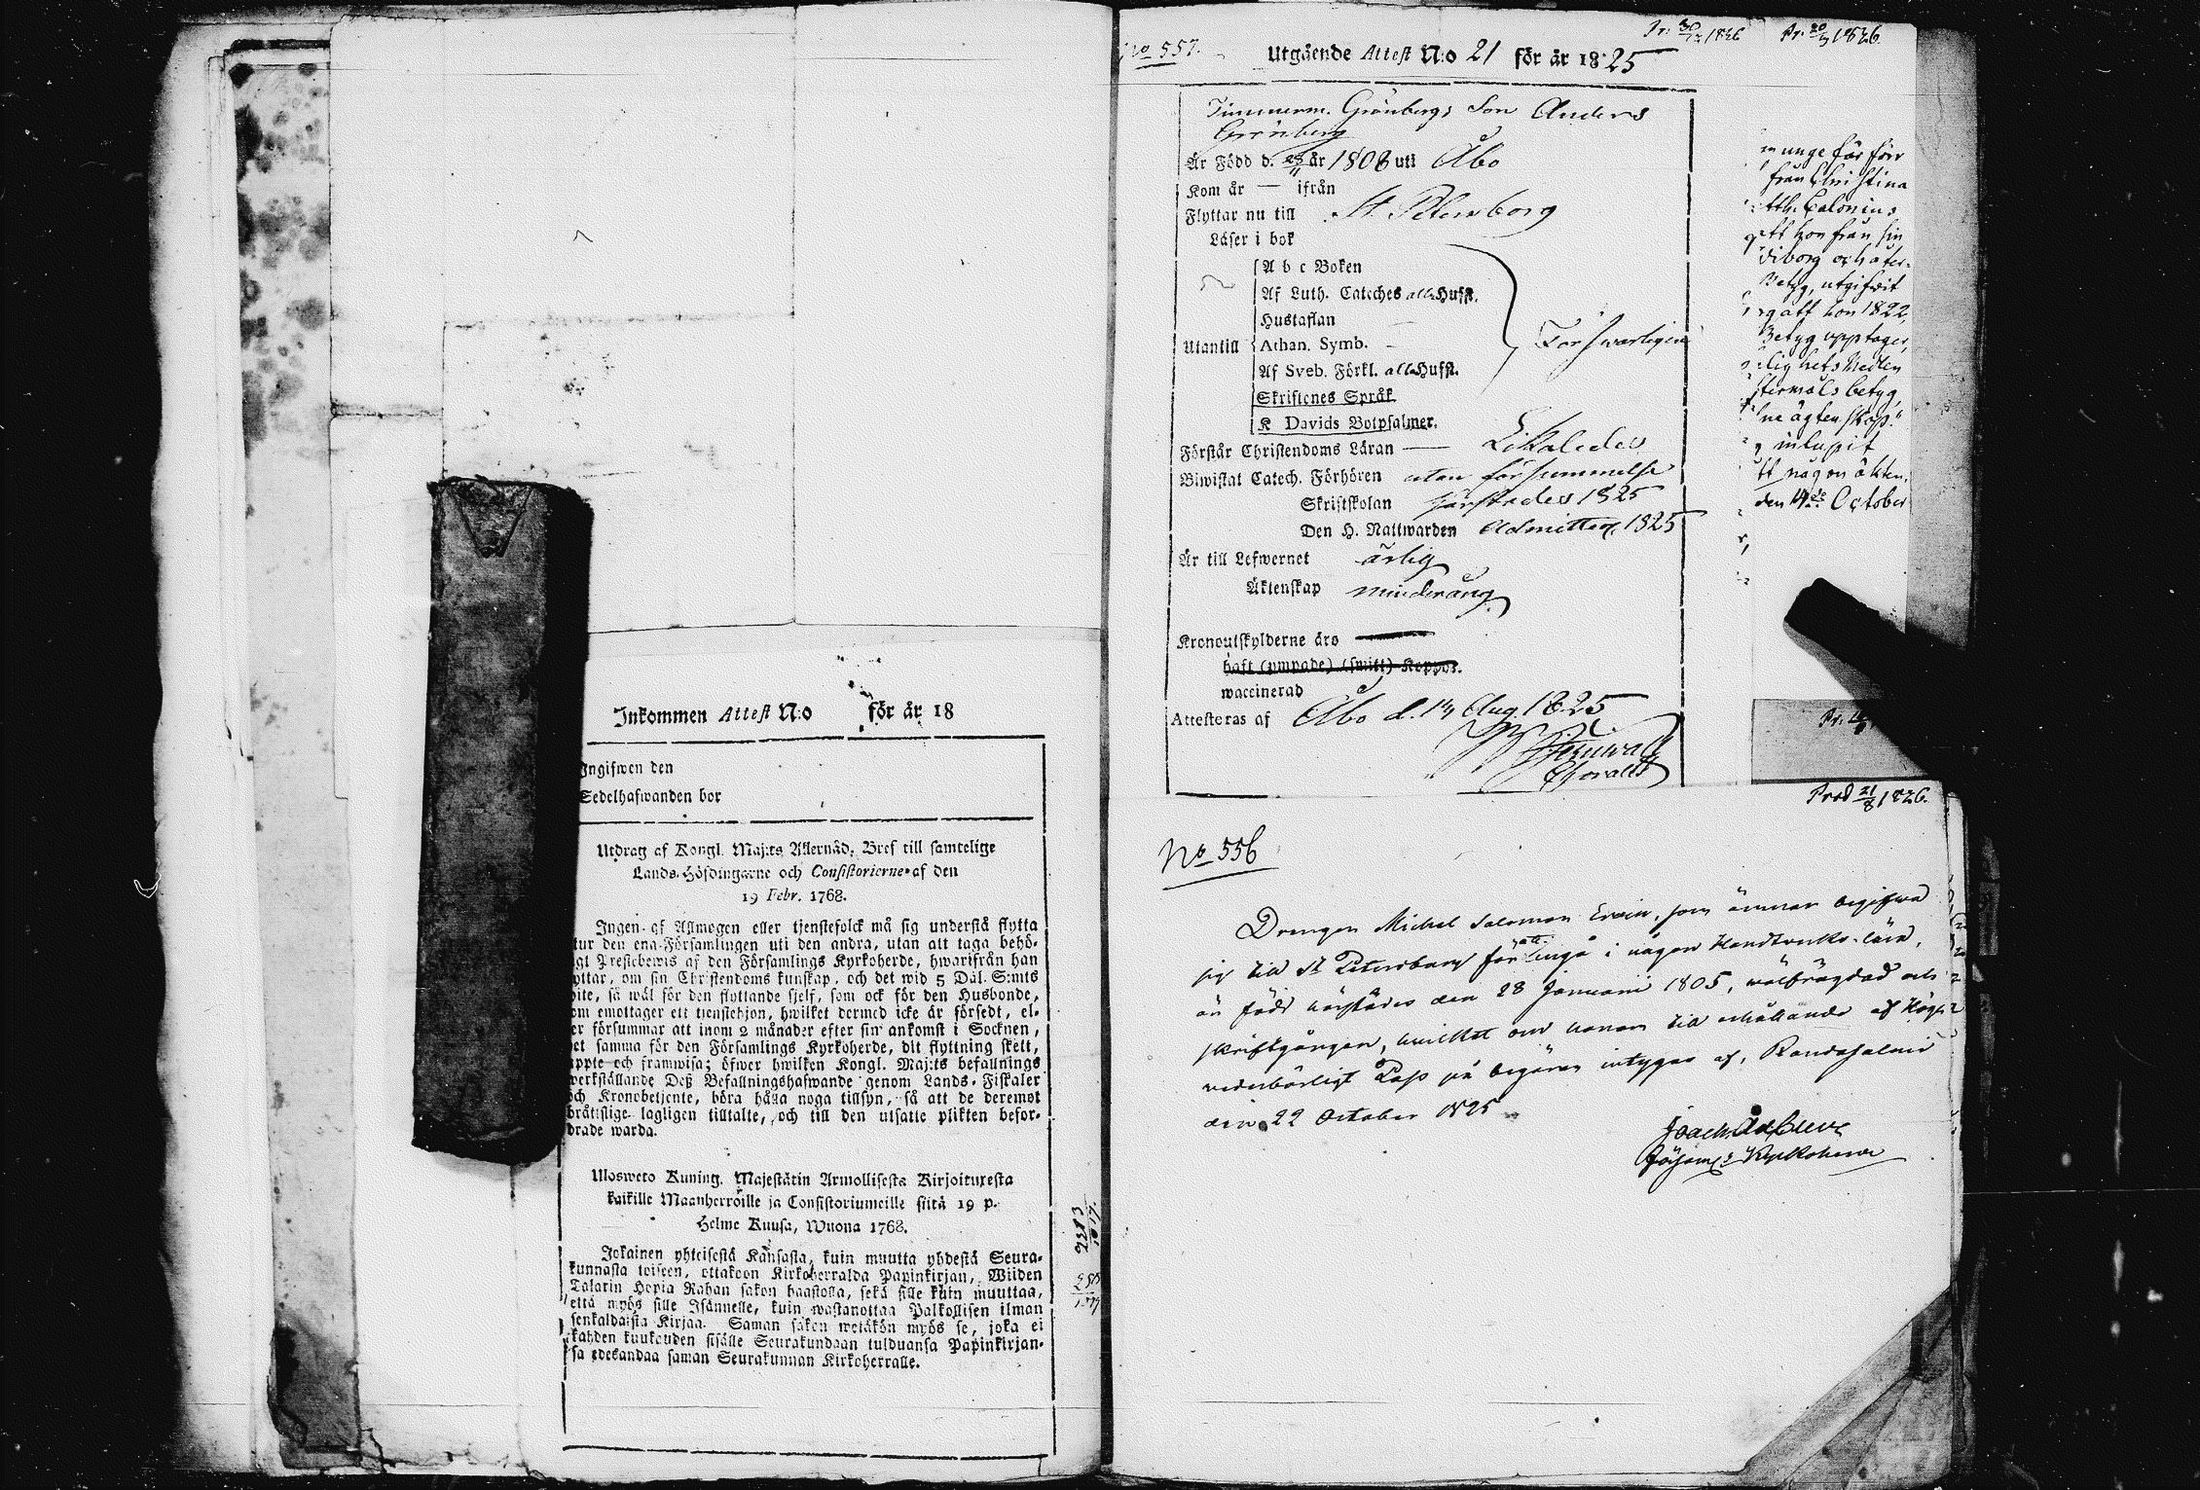 Inkommen Attest N:o för år 18
Ingifwen den
Sedelhafwanden bor
Utdrag af Kongl. Maj:ts Allernåd. Bref till samtelige
Lands-Höfdingarne och Consistorierne af den
19 Febr. 1768.
Ingen af Allmogen eller tjenstefolck må sig understå flytta
utur den ena Församlingen uti den andra, utan att taga behö-
Prestebewis af den Församlings Kyrkoherde, hwarifrån han
om sin Christendoms kunskap, och det wid 5 Dal. S:mts
så wäl för den flyttande sjelf, som ock för den Husbonde,
emottager ett tjenstehjon, hwilket dermed icke är försedt, el-
försummar att inom 2 månader efter sin ankomst i Socknen,
samma för den Församlings Kyrkoherde, dit flyttning skett,
och framwisa; öfwer hwilken Kongl. Maj:ts befallnings
werkställande Deß Befallningshafwande genom Lands-Fiskaler
och Kronobetjente, böra hålla noga tillsyn, så att de deremot
lagligen tilltalte, och till den utsatte plikten befor-
drade warda.
Ulosweto Kuning. Majestätin Armollisesta Kirjoituxesta
kaikille Maanherroille ja Consistoriumeille siitä 19 p.
Helme Kuusa, Wuona 1768.
Jokainen yhteisestä Kansasta, kuin muutta yhdestä Seura-
kunnasta toiseen, ottakoon Kirkoherralda Papinkirjan, Wiiden
Talarin Hopia Rahan sakon haastolla, sekä sille kuin muuttaa,
että myös sille Isännelle, kuin wastanottaa Palkollisen ilman
senkaldaista Kirjaa. Saman sakon wetäkön myös se, joka ei
kahden kuukauden sisälle Seurakundaan tulduansa Papinkirjan-
sa edesandaa saman Seurakunnan Kirkoherralle.
No 557.
Utgående Attest N:o 21 för år 1825
Timmerm. Grönbergs Son Anders
Grönberg
Är Född d. 28/11 år 1808 uti Åbo
Kom år — ifrån
Flyttar nu till St Petersborg
Läser i bok
A b c Boken
Af Luth. Cateches all. Hufst.
Hustaflan
Utantill Athan. Symb.
Af Sveb. Förkl. all. Hufst.
Skriftenes Språk
K Davids Botpsalmer.
Förswarligen
Förstår Christendoms Läran — Likaledes
Biwistat Catech. Förhören utan försummelse
Skriftskolan härstädes 1825
Den H. Nattwarden admitter. 1825
Är till Lefwernet ärlig
Äktenskap minderårig
Kronoutskylderne äro
haft (ympade) (smitt) Koppor.
waccinerad
Attesteras af Åbo d. 14 Aug. 1825
Pr. 20/7 1826.
ungefär för
från Christina
Calonius
att hon från sin
Viborg och åter-
Betyg, utgifvit
hon 1822,
Betyg upptager,
betyg,
inlupit
någon äkten
den 4de October
Prod 21/8 1826.
No 556
Drengen Michel Salomon Ervin, som ämnar begifwa
sig till St Petersburg för att ingå i någon Handtverks-lära,
är född härstädes den 28 Januarii 1805, wälfrägdad och
skriftgången, hwilket om honom till erhållande af Höga
wederbörligt Pass på begäran intygas af, Randasalmi
den 22 October 1825
Kyrkoherde